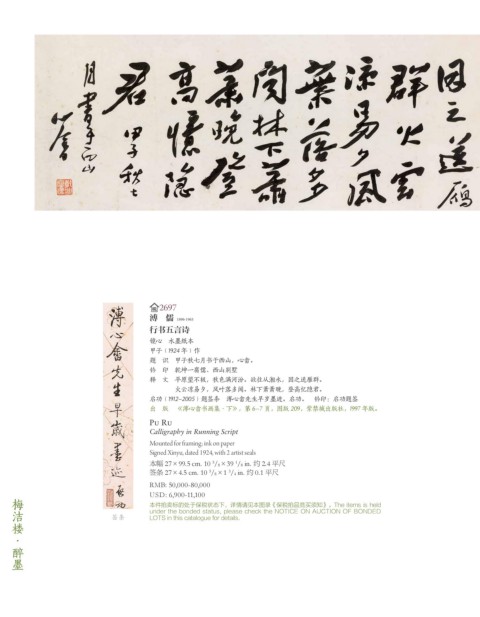 因之送雁
群火雲
涼易夕風
葉落多
閑林下蕭
蕭晚登
高懷隐
君甲子秋七
月書于西山
心畬
溥心畬先生早歲墨迹 啟功
签条
2697
溥 儒 1896-1963
行书五言诗
镜心 水墨纸本
甲子(1924年)作
题 识 甲子秋七月书于西山,心畬。
钤 印 乾坤一腐儒、西山别墅
释 文
火云凉易夕,风叶落多闲。林下萧萧晚,登高忆隐君。
启功(1912-2005)题签条 溥心畬先生早岁墨迹。启功。 钤印:启功题签
出 版 《溥心畬书画集·下》,第6-7页,图版209,紫禁城出版社,1997年版。
PU RU
Calligraphy in Running Script
Mounted for framing; ink on paper
Signed Xinyu, dated 1924, with 2 artist seals
本幅 27 × 99.5 cm. 10 5/8 × 39 1/8 in. 约 2.4 平尺
签条 27 × 4.5 cm. 10 5/8 × 1 3/4 in. 约 0.1 平尺
RMB: 50,000-80,000
USD: 6,900-11,100
本件拍卖标的处于保税状态下,详情请见本图录《保税拍品竞买须知》。The items is held
under the bonded status, please check the NOTICE ON AUCTION OF BONDED
LOTS in this catalogue for details.
梅洁楼·醉墨